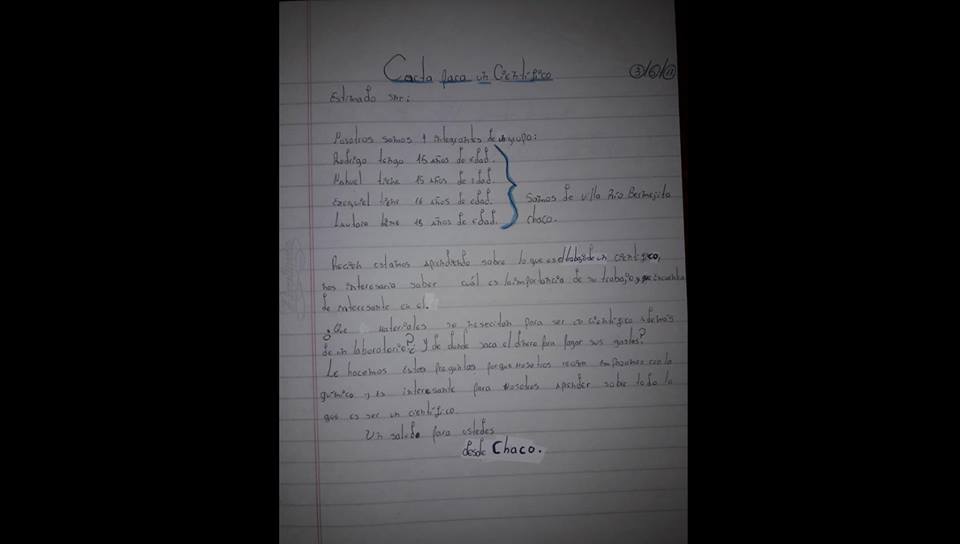 Carta para un Científico
Estimado Snr:
Nosotros somos 4 integrantes de un grupo:
Rodrigo tengo 15 años de edad.
Mahuel tiene 15 años de edad.
Exequiel tiene 16 años de edad.
Lautaro tiene 15 años de edad.
Somos de Villa Río Bermejito
Chaco.
Recién estamos aprendiendo sobre lo que es el trabajo de un científico,
nos interesaria saber cuál es la importancia de su trabajo y que encuentra
de interesante en el.
¿Que materiales se nesecitan para ser un científico además
de un laboratorio? ¿y de donde saca el dinero para pagar sus gastos?
Le hacemos estas preguntas porque nosotros recien empezamos con la
química y es interesante para nosotros aprender sobre todo lo
que es ser un científico.
Un saludo para ustedes
desde Chaco.